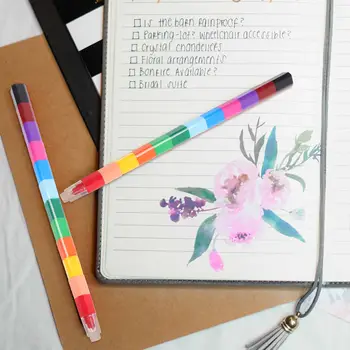 Is the barn rainproof?
Parking-lot? wheelchair accessible?
Crystal chandeliers
Floral arrangements
Bonfire Available?
Bridal suite